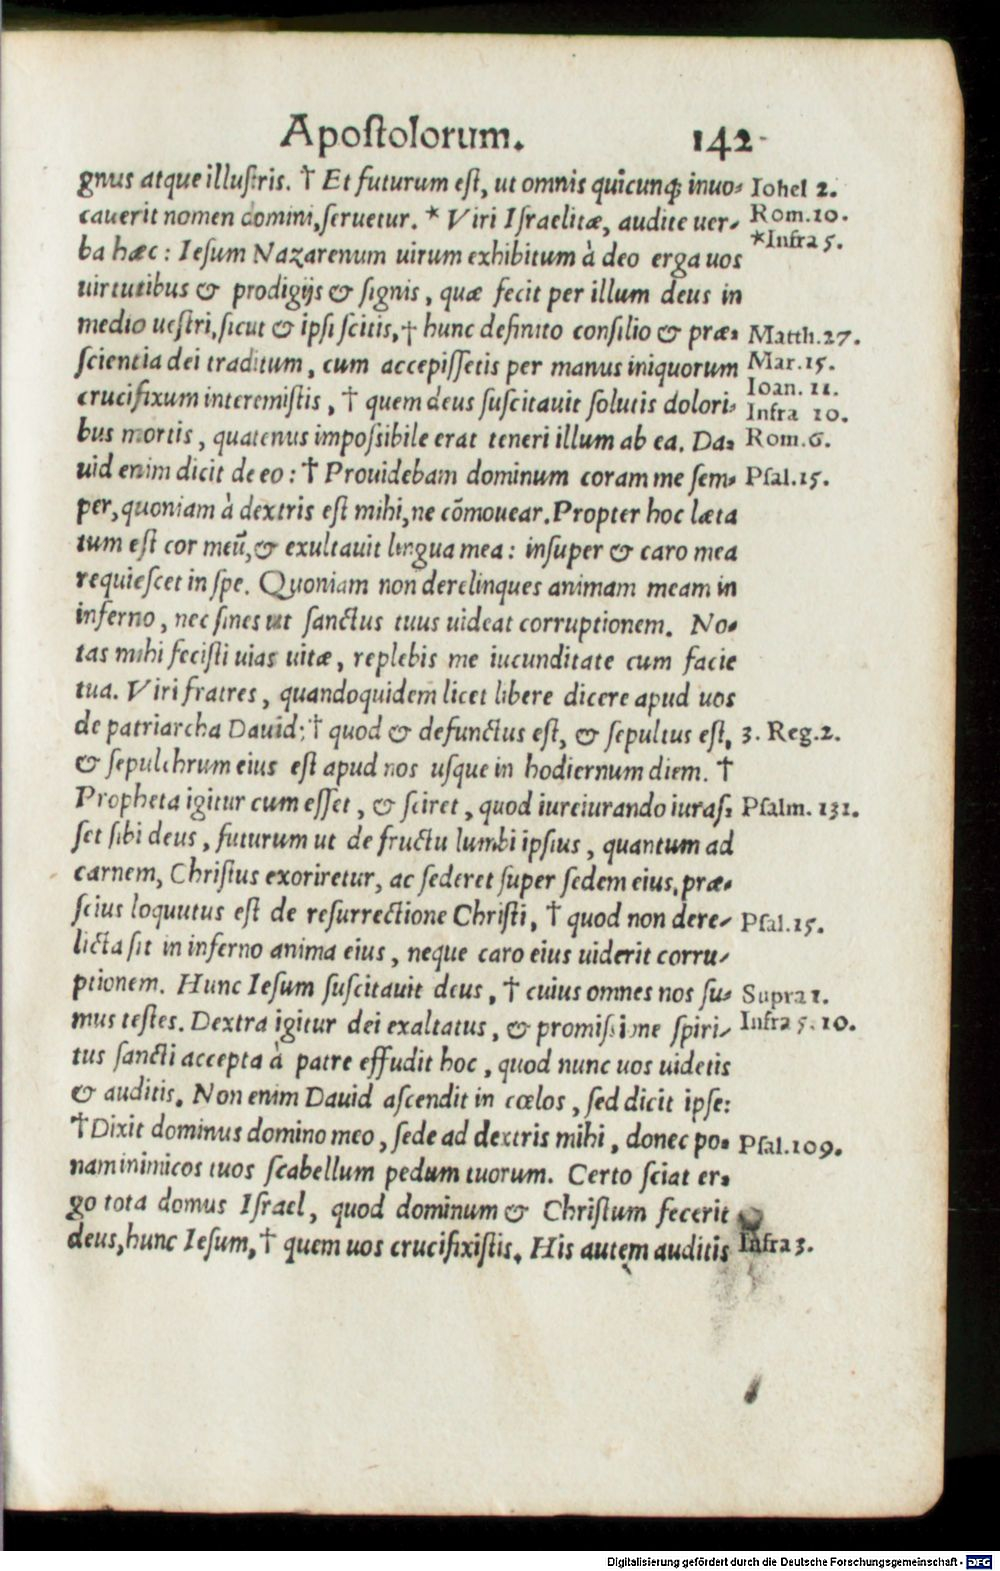 Apostolorum. 142
gnus atque illustris. † Et futurum est, ut omnis quicunq; inuo- Iohel 2.
cauerit nomen domini, seruetur. * Viri Israelitæ, audite uer- Rom. 10.
*Infra 5.
ba hæc: Iesum Nazarenum uirum exhibitum à deo erga uos
uirtutibus & prodigijs & signis, quæ fecit per illum deus in
medio uestri, sicut & ipsi scitis, † hunc definito consilio & præ- Matth. 27.
scientia dei traditum, cum accepissetis per manus iniquorum Mar. 15.
Ioan. 11.
crucifixum interemistis, † quem deus suscitauit solutis dolori- Infra 10.
bus mortis, quatenus impossibile erat teneri illum ab ea. Da- Rom. 6.
uid enim dicit de eo: † Prouidebam dominum coram me sem- Psal. 15.
per, quoniam à dextris est mihi, ne cõmouear. Propter hoc læta
tum est cor meũ, & exultauit lingua mea: insuper & caro mea
requiescet in spe. Quoniam non derelinques animam meam in
inferno, nec sines ut sanctus tuus uideat corruptionem. No-
tas mihi fecisti uias uitæ, replebis me iucunditate cum facie
tua. Viri fratres, quandoquidem licet libere dicere apud uos
de patriarcha Dauid: † quod & defunctus est, & sepultus est, 3. Reg. 2.
& sepulchrum eius est apud nos usque in hodiernum diem. †
Propheta igitur cum esset, & sciret, quod iureiurando iuras- Psalm. 131.
set sibi deus, futurum ut de fructu lumbi ipsius, quantum ad
carnem, Christus exoriretur, ac sederet super sedem eius, præ-
scius loquutus est de resurrectione Christi, † quod non dere- Psal. 15.
licta sit in inferno anima eius, neque caro eius uiderit corru-
ptionem. Hunc Iesum suscitauit deus, † cuius omnes nos su- Supra 1.
mus testes. Dextra igitur dei exaltatus, & promissione spiri- Infra 5. 10.
tus sancti accepta à patre effudit hoc, quod nunc uos uidetis
& auditis. Non enim Dauid ascendit in cœlos, sed dicit ipse:
† Dixit dominus domino meo, sede ad dextris mihi, donec po- Psal. 109.
nam inimicos tuos scabellum pedum tuorum. Certo sciat er-
go tota domus Israel, quod dominum & Christum fecerit
deus, hunc Iesum, † quem uos crucifixistis. His autem auditis Infra 3.
Digitalisierung gefördert durch die Deutsche Forschungsgemeinschaft - DFG